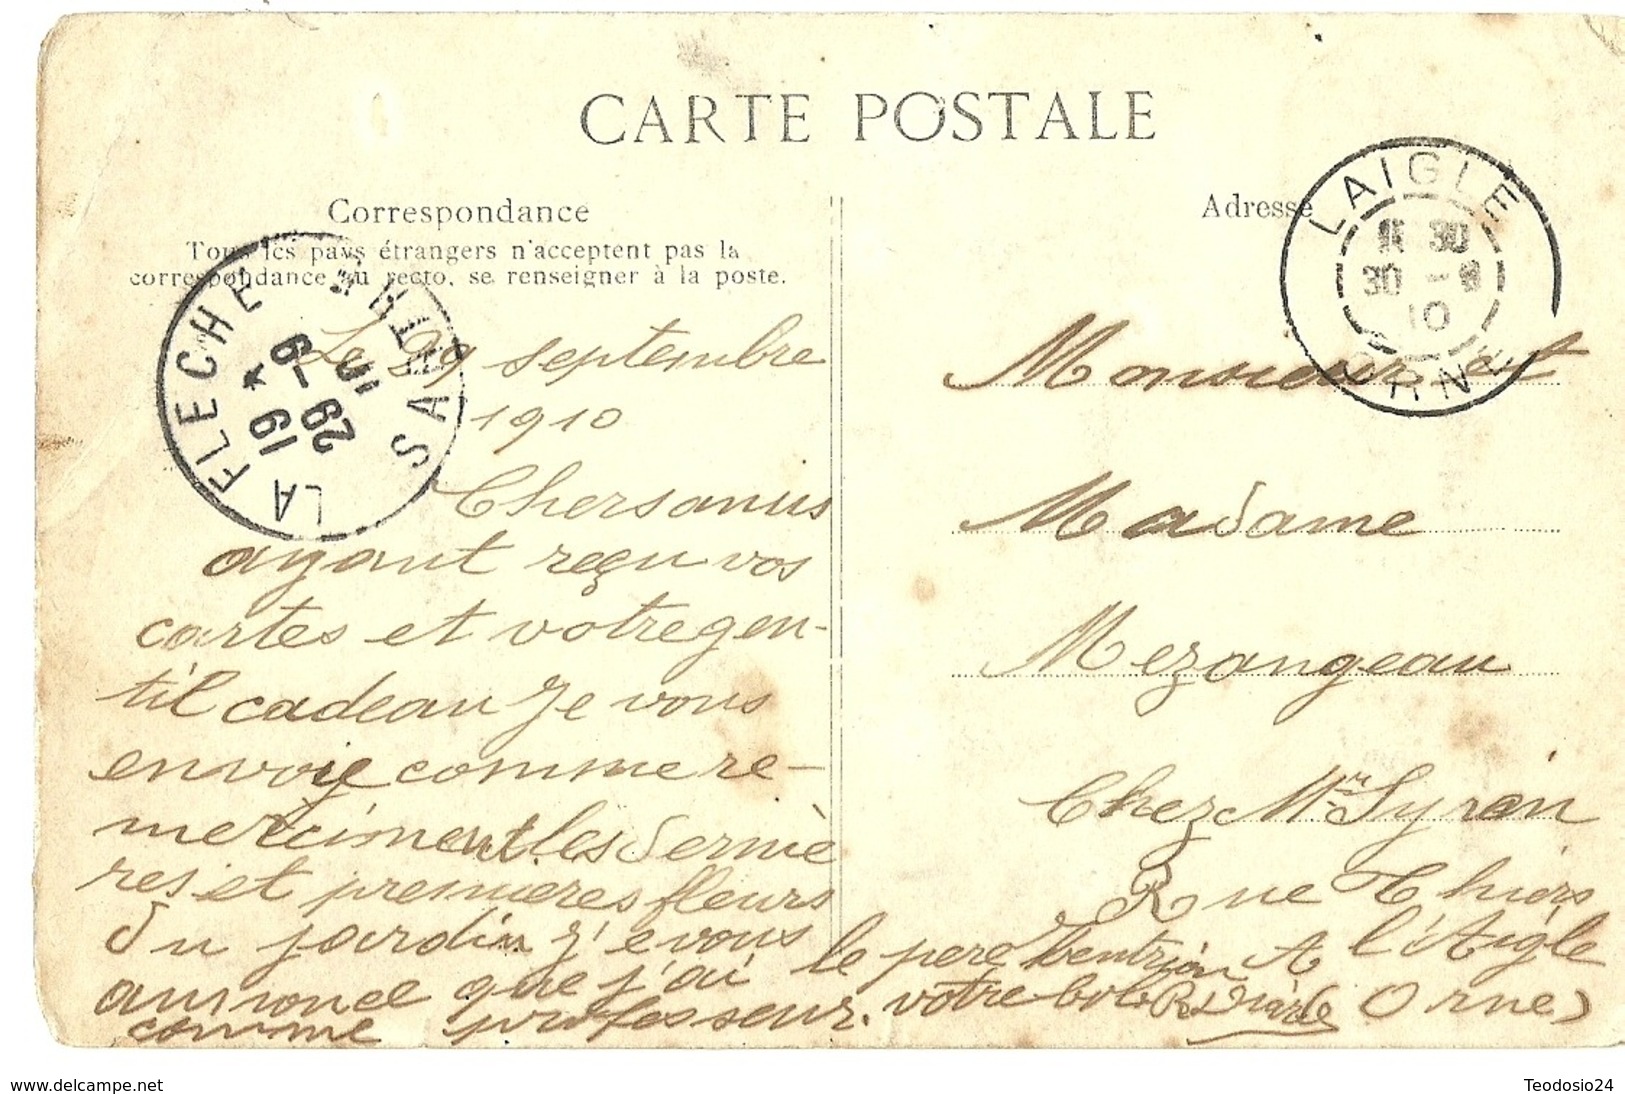 CARTE POSTALE
Correspondance
Tous les pays étrangers n'acceptent pas la
correspondance au recto, se renseigner à la poste.
Le 29 septembre
1910
Chers amis
ayant reçu vos
cartes et votre gen-
til cadeau Je vous
envoie comme re-
merciment les derniè
res et premieres fleurs
du jardin J'e vous
annonce que j'ai le pere
comme professeur. votre
Adresse
Monsieur et
Madame
Mezangeau
Chez Mr
Rue Thiers
A l'Aigle
Orne)
LA FLECHE * SARTHE
19
29-9
10
LAIGLE
30
30 -9
10
ORNE
www.delcampe.net
Teodosio24